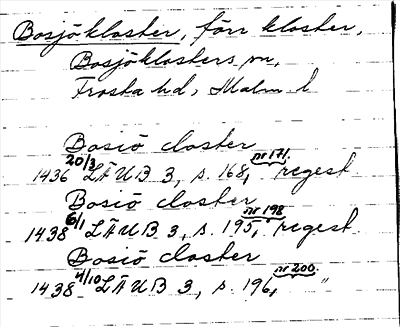 Bosjökloster, förr kloster,
Bosjöklosters sn,
Frosta hd, Malm l
Bosiö closter
1436 20/3 LÄUB 3, s. 168, nr 171. regest
Bosiö closter
1438 6/1 LÄUB 3, s. 195, nr 198 regest.
Bosiö closter
1438 4/10 LÄUB 3, s. 196, nr 200. "